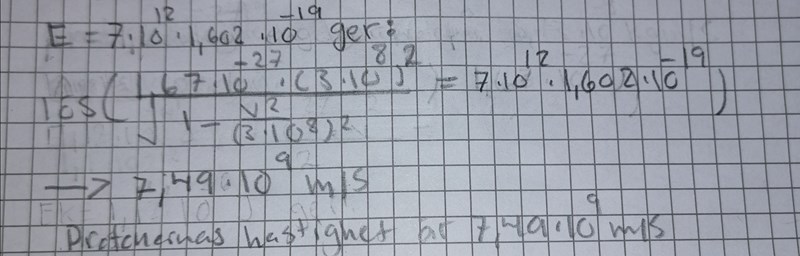 E = 7·10^12 · 1,602 · 10^-19 ger:
los( (1,67·10^-27 · (3·10^8)^2) / √(1 - v^2/(3·10^8)^2) = 7·10^12 · 1,602·10^-19 )
→ 7,49·10^9 m/s
Protonernas hastighet är 7,49·10^9 m/s